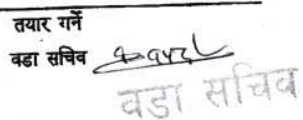 तयार गर्ने
वडा सचिव
वडा सचिव